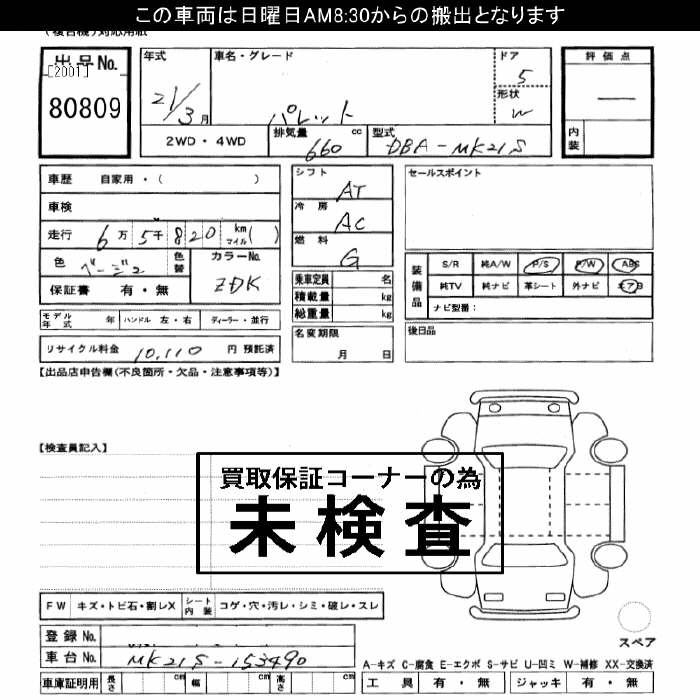 この車両は日曜日AM8:30からの搬出となります
(複合機)対応用紙
出品No.
[2001]
80809
年式
21/3月
車名・グレード
パレット
ドア
5
形状
W
評価点
―
内装
2WD・4WD
排気量
660 cc
型式
DBA-MK21S
車歴 自家用・( )
車検
走行 6万5千820km マイル( )
色 ベージュ
色替
カラーNo.
ZDK
保証書 有・無
モデル年式 年
ハンドル 左・右
ディーラー・並行
リサイクル料金 10,110 円 預託済
シフト
AT
冷房
AC
燃料
G
乗車定員 名
積載量 kg
総重量 kg
名変期限
月 日
セールスポイント
装備品
S/R 純A/W P/S P/W ABS
純TV 純ナビ 革シート 外ナビ エアB
ナビ型番:
後日品
【出品店申告欄(不良箇所・欠品・注意事項等)】
【検査員記入】
買取保証コーナーの為
未検査
FW キズ・トビ石・割レX
シート内装 コゲ・穴・汚レ・シミ・破レ・スレ
登録No.
車台No. MK21S-153490
車庫証明用 長さ cm 幅 cm 高さ cm
スペア
A-キズ C-腐食 E-エクボ S-サビ U-凹ミ W-補修 XX-交換済
工具 有・無 ジャッキ 有・無